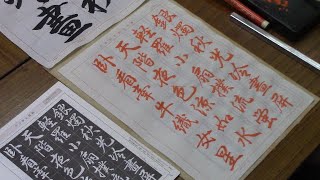 銀燭秋光冷畫屏
輕羅小扇撲流螢
天階夜色涼如水
臥看牽牛織女星
銀燭秋光冷畫屏
輕羅小扇撲
天階夜色
臥看牽
秋
畫